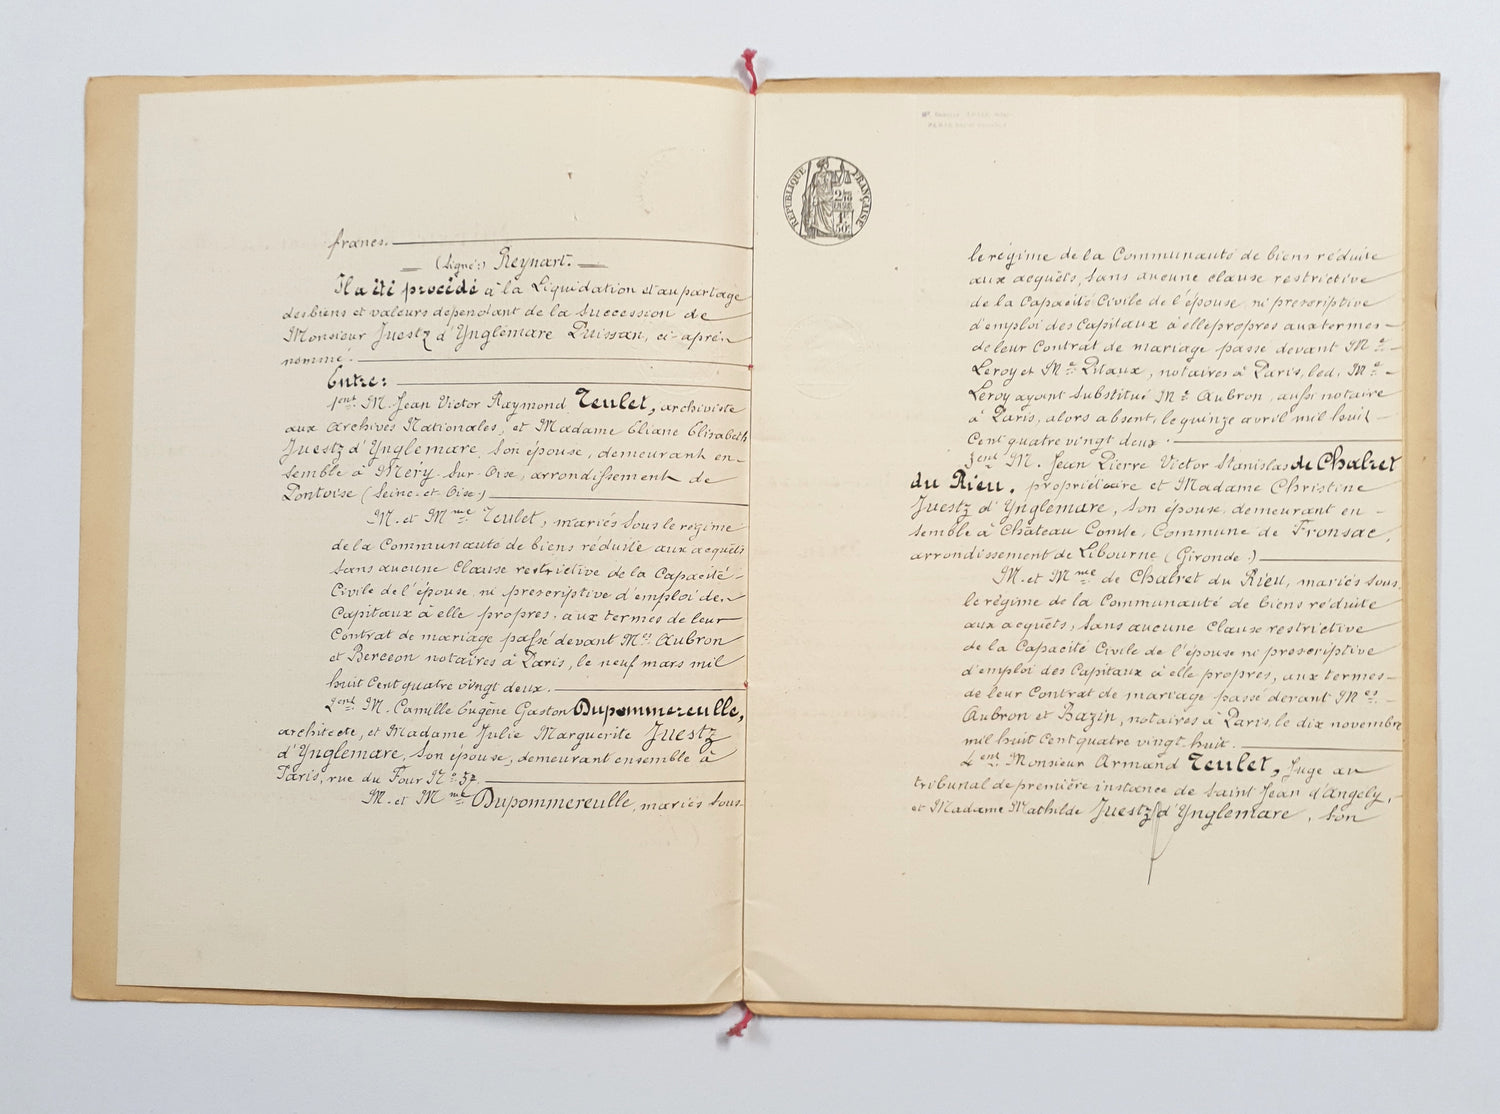 francs.
(Signé:) Reynart.
Il a été procédé à la Liquidation et au partage
des biens et valeurs dépendant de la Succession de
Monsieur Juestz d'Ynglemare Puissan, ci-après
nommé.
Entre:
1ent M. Jean Victor Raymond Teulet, archiviste
aux Archives Nationales, et Madame Eliane Elisabeth
Juestz d'Ynglemare, son épouse, demeurant en-
semble à Méry-sur-Oise, arrondissement de
Pontoise (Seine-et-Oise)
M. et Mme Teulet, mariés sous le régime
de la Communauté de biens réduite aux acquêts
sans aucune clause restrictive de la Capacité
Civile de l'épouse, ni prescriptive d'emploi de
Capitaux à elle propres, aux termes de leur
Contrat de mariage passé devant Mes Aubron
et Berceon notaires à Paris, le neuf mars mil
huit cent quatre vingt deux.
2ent M. Camille Eugène Gaston Dupommereulle,
architecte, et Madame Julie Marguerite Juestz
d'Ynglemare, son épouse, demeurant ensemble à
Paris, rue du Four No 57.
M. et Mme Dupommereulle, mariés sous
RÉPUBLIQUE FRANÇAISE
2/10
EN SUS
1F
50c
le régime de la Communauté de biens réduite
aux acquêts, sans aucune clause restrictive
de la Capacité Civile de l'épouse, ni prescriptive
d'emploi des Capitaux à elle propres aux termes
de leur Contrat de mariage passé devant Me
Leroy et Me Pitaux, notaires à Paris, led. Me
Leroy ayant substitué Me Aubron, aussi notaire
à Paris, alors absent, le quinze avril mil huit
cent quatre vingt deux.
3ent M. Jean Pierre Victor Stanislas de Chalret
du Rieu, propriétaire et Madame Christine
Juestz d'Ynglemare, son épouse, demeurant en-
semble à Château Comte, Commune de Fronsac,
arrondissement de Libourne (Gironde)
M. et Mme de Chalret du Rieu, mariés sous
le régime de la Communauté de biens réduite
aux acquêts, sans aucune clause restrictive
de la Capacité Civile de l'épouse ni prescriptive
d'emploi des Capitaux à elle propres, aux termes
de leur Contrat de mariage passé devant Mes
Aubron et Bazin, notaires à Paris, le dix novembre
mil huit cent quatre vingt-huit.
4ent Monsieur Armand Teulet, Juge au
tribunal de première instance de Saint Jean d'Angely,
et Madame Mathilde Juestz d'Ynglemare, son